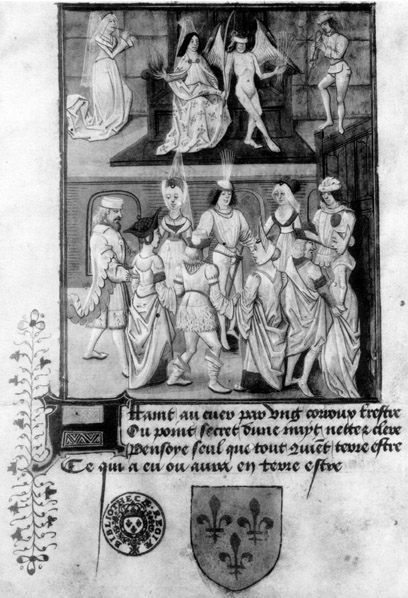 Etant au cuer par ung corroux trestre
Ou point secret dune nuyt nette clere
Pensoye seul que tout vivent terrestre
Ce qui a eu ou aura en terre estre
BIBLIOTHECÆ REGIÆ